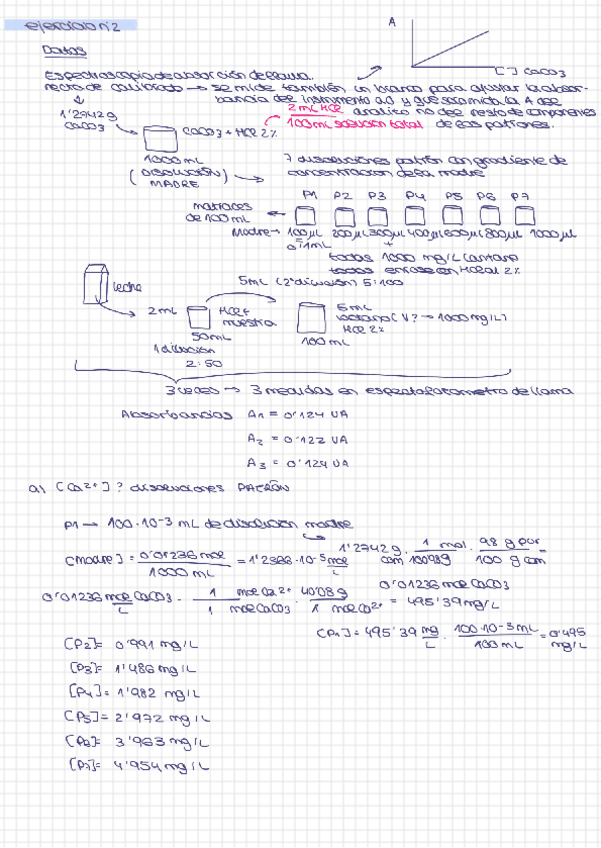 ejercicio nº2
A
[ ] CaCO3
Datos
Espectroscopia de absorción de llama.
recta de calibrado → se mide también un blanco para ajustar la absor-
bancia del instrumento a 0 y que solo mida la A del
1'2742g CaCO3
2 mL HCl
100 mL solución total
analito no del resto de componentes
de los patrones.
CaCO3 + HCl 2%
1000 mL
(DISOLUCIÓN MADRE)
7 disoluciones patrón con gradiente de
concentración de la madre
P1 P2 P3 P4 P5 P6 P7
matraces
de 100 mL
Madre → 100µL 200µL 300µL 400µL 600µL 800µL 1000µL
0'1mL
+
todas 1000 mg/L lantano
todas enrase con HCl al 2%
leche
2mL
HCl + muestra
50mL
1 dilución
2:50
5mL (2ª dilución) 5:100
5mL
lantano (V? → 1000mg/L)
HCl 2%
100 mL
3 veces → 3 medidas en espectofotometro de llama
Absorbancias A1 = 0'124 UA
A2 = 0'122 UA
A3 = 0'124 UA
a) [Ca2+]? disoluciones PATRÓN
P1 → 100·10-3 mL de disolución madre
1'2742 g com · 1 mol / 100'09g · 98 g pur / 100 g com =
0'01236 mol CaCO3
[Madre] = 0'01236 mol / 1000 mL = 1'2366·10-5 mol/L
0'01236 mol CaCO3 / L · 1 mol Ca2+ / 1 mol CaCO3 · 40'08g / 1 mol Ca2+ = 495'39 mg/L
[P1] = 495'39 mg/L · 100·10-3 mL / 100 mL = 0'495 mg/L
[P2]= 0'991 mg/L
[P3]= 1'486 mg/L
[P4]= 1'982 mg/L
[P5]= 2'972 mg/L
[P6]= 3'963 mg/L
[P7]= 4'954 mg/L